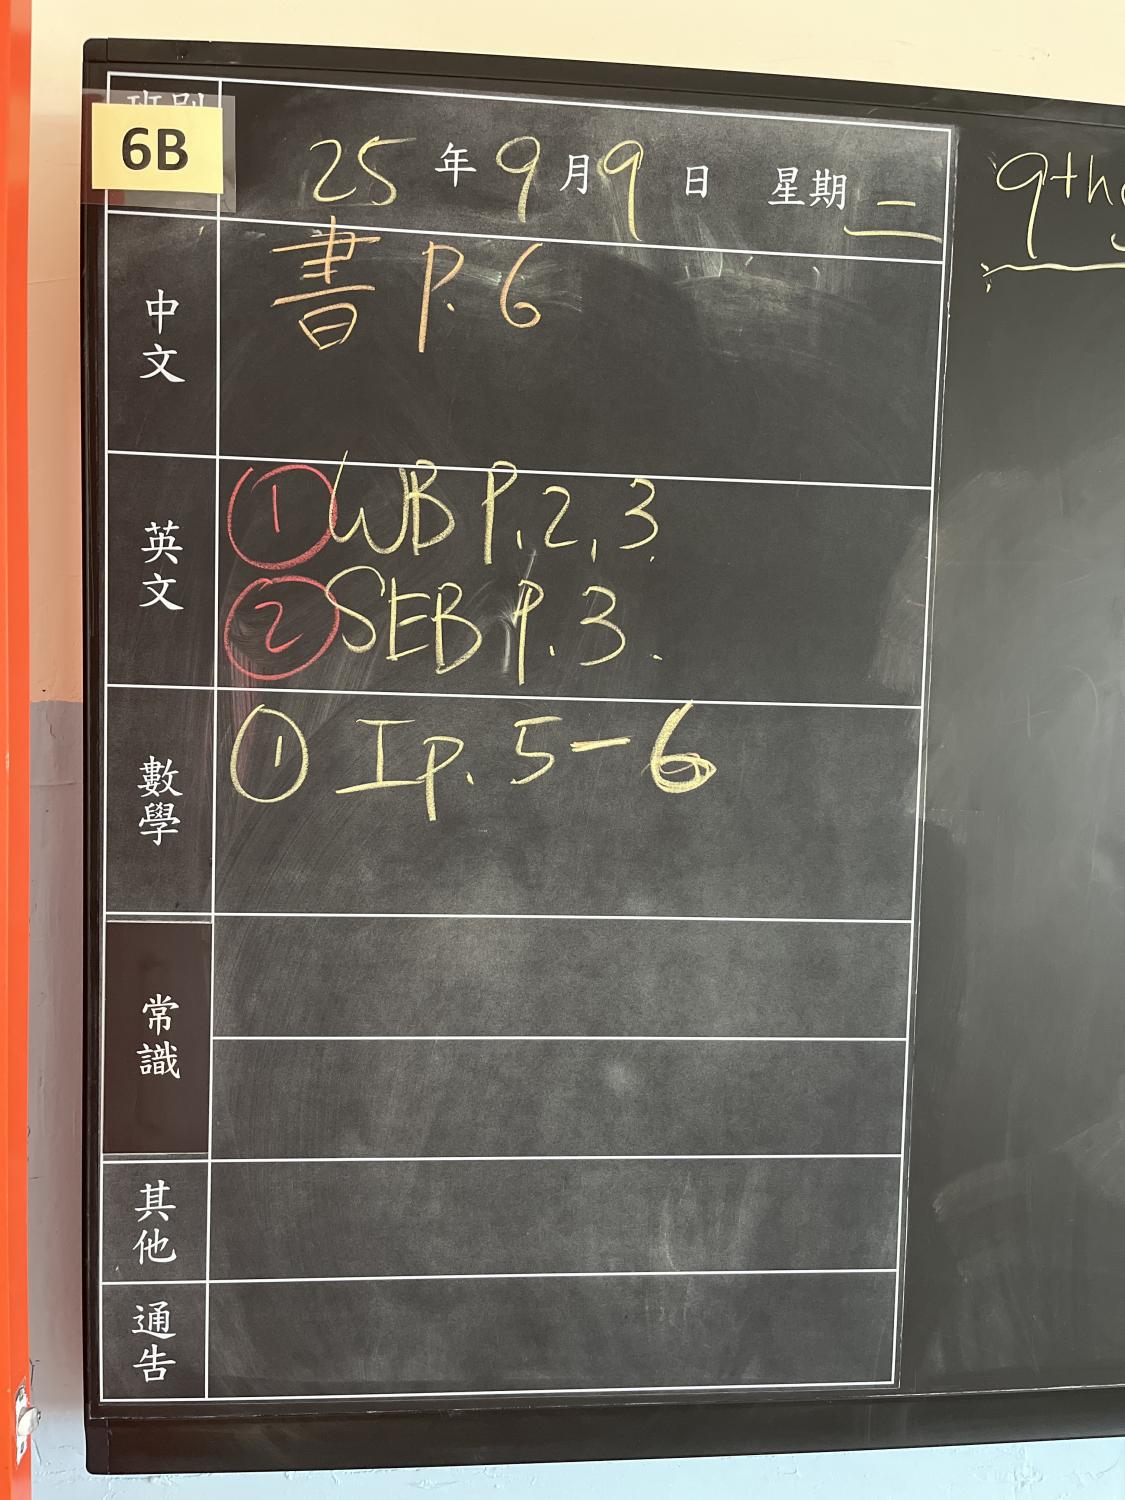 班別
6B
25年9月9日 星期二
中文
書 P. 6
英文
① WB P. 2, 3
② SEB P. 3.
數學
① I p. 5-6
常識
其他
通告
9th